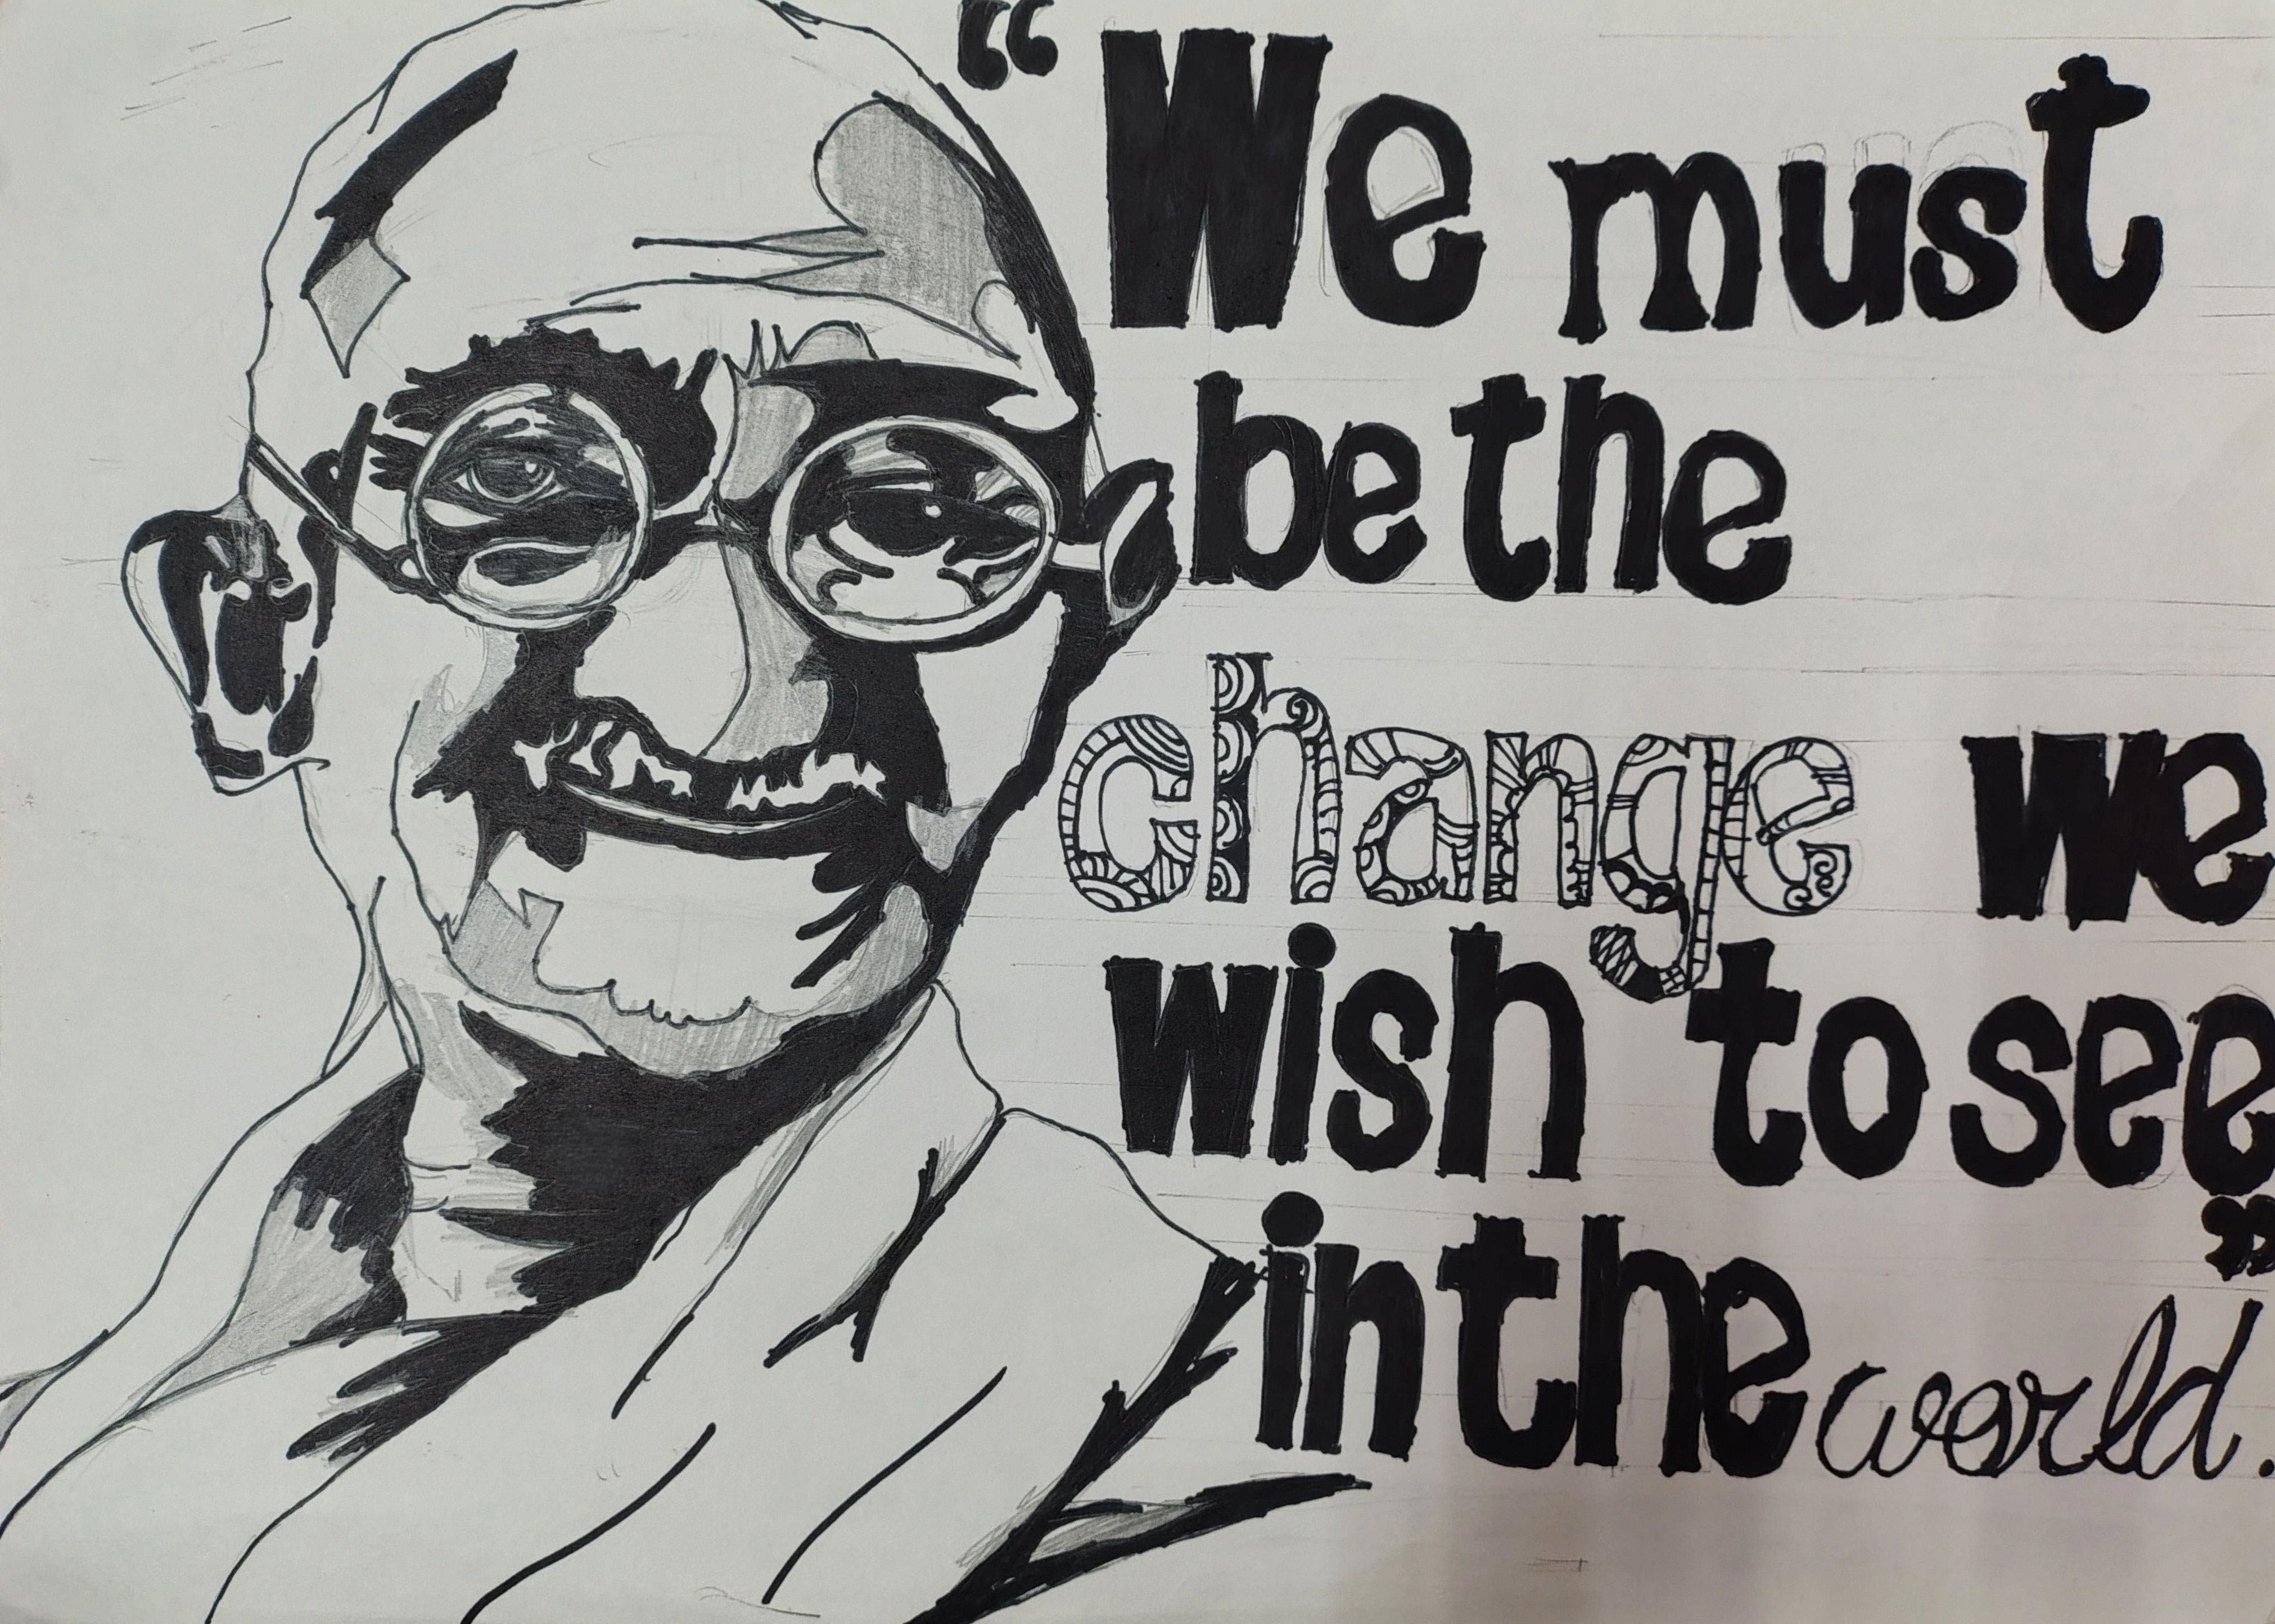 “We must
be the
change we
wish to see
in the world.”